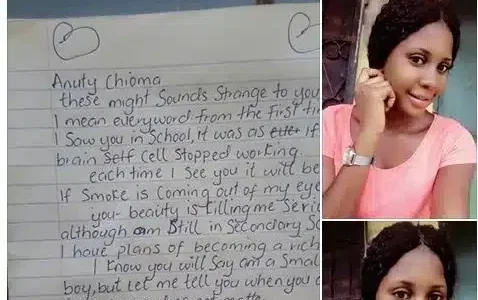 Anuty Chioma
these might Sounds Strange to you
I mean everyword from the First
I Sow you in School, it was as if
brain Self Cell Stopped working.
each time I See you it will be
If Smoke is Coming out of my eye
you- beauty is killing me Seri
although am Still in Secondary Sc
I have plans of becoming a rich
I Know you will Say am a Small
boy, but let me tell you when you